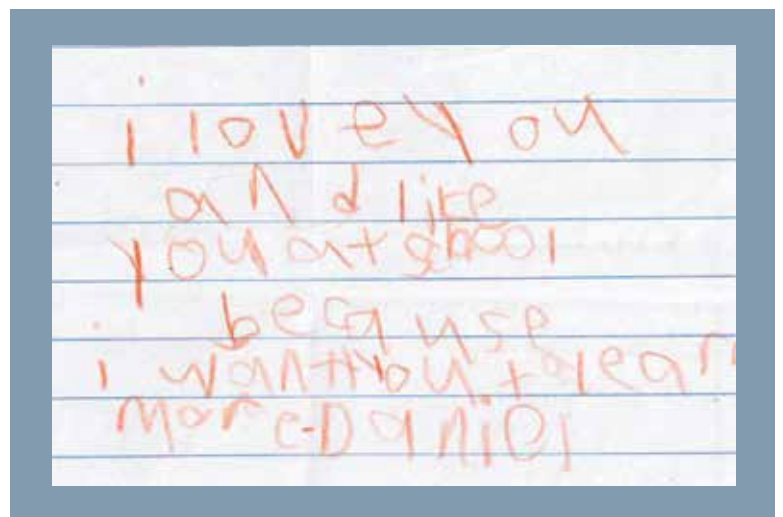 i love you
and like
you at school
because
i want you to learn
more-Daniel